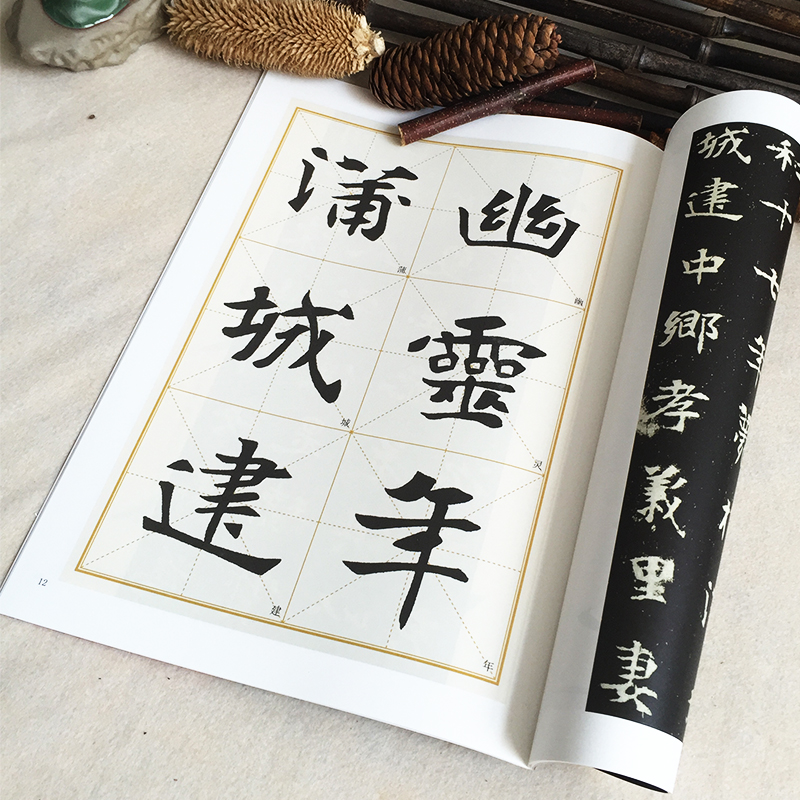 幽靈年
幽
灵
年
蒲城建
蒲
城
建
12
和十七年
城建中鄉孝義里妻